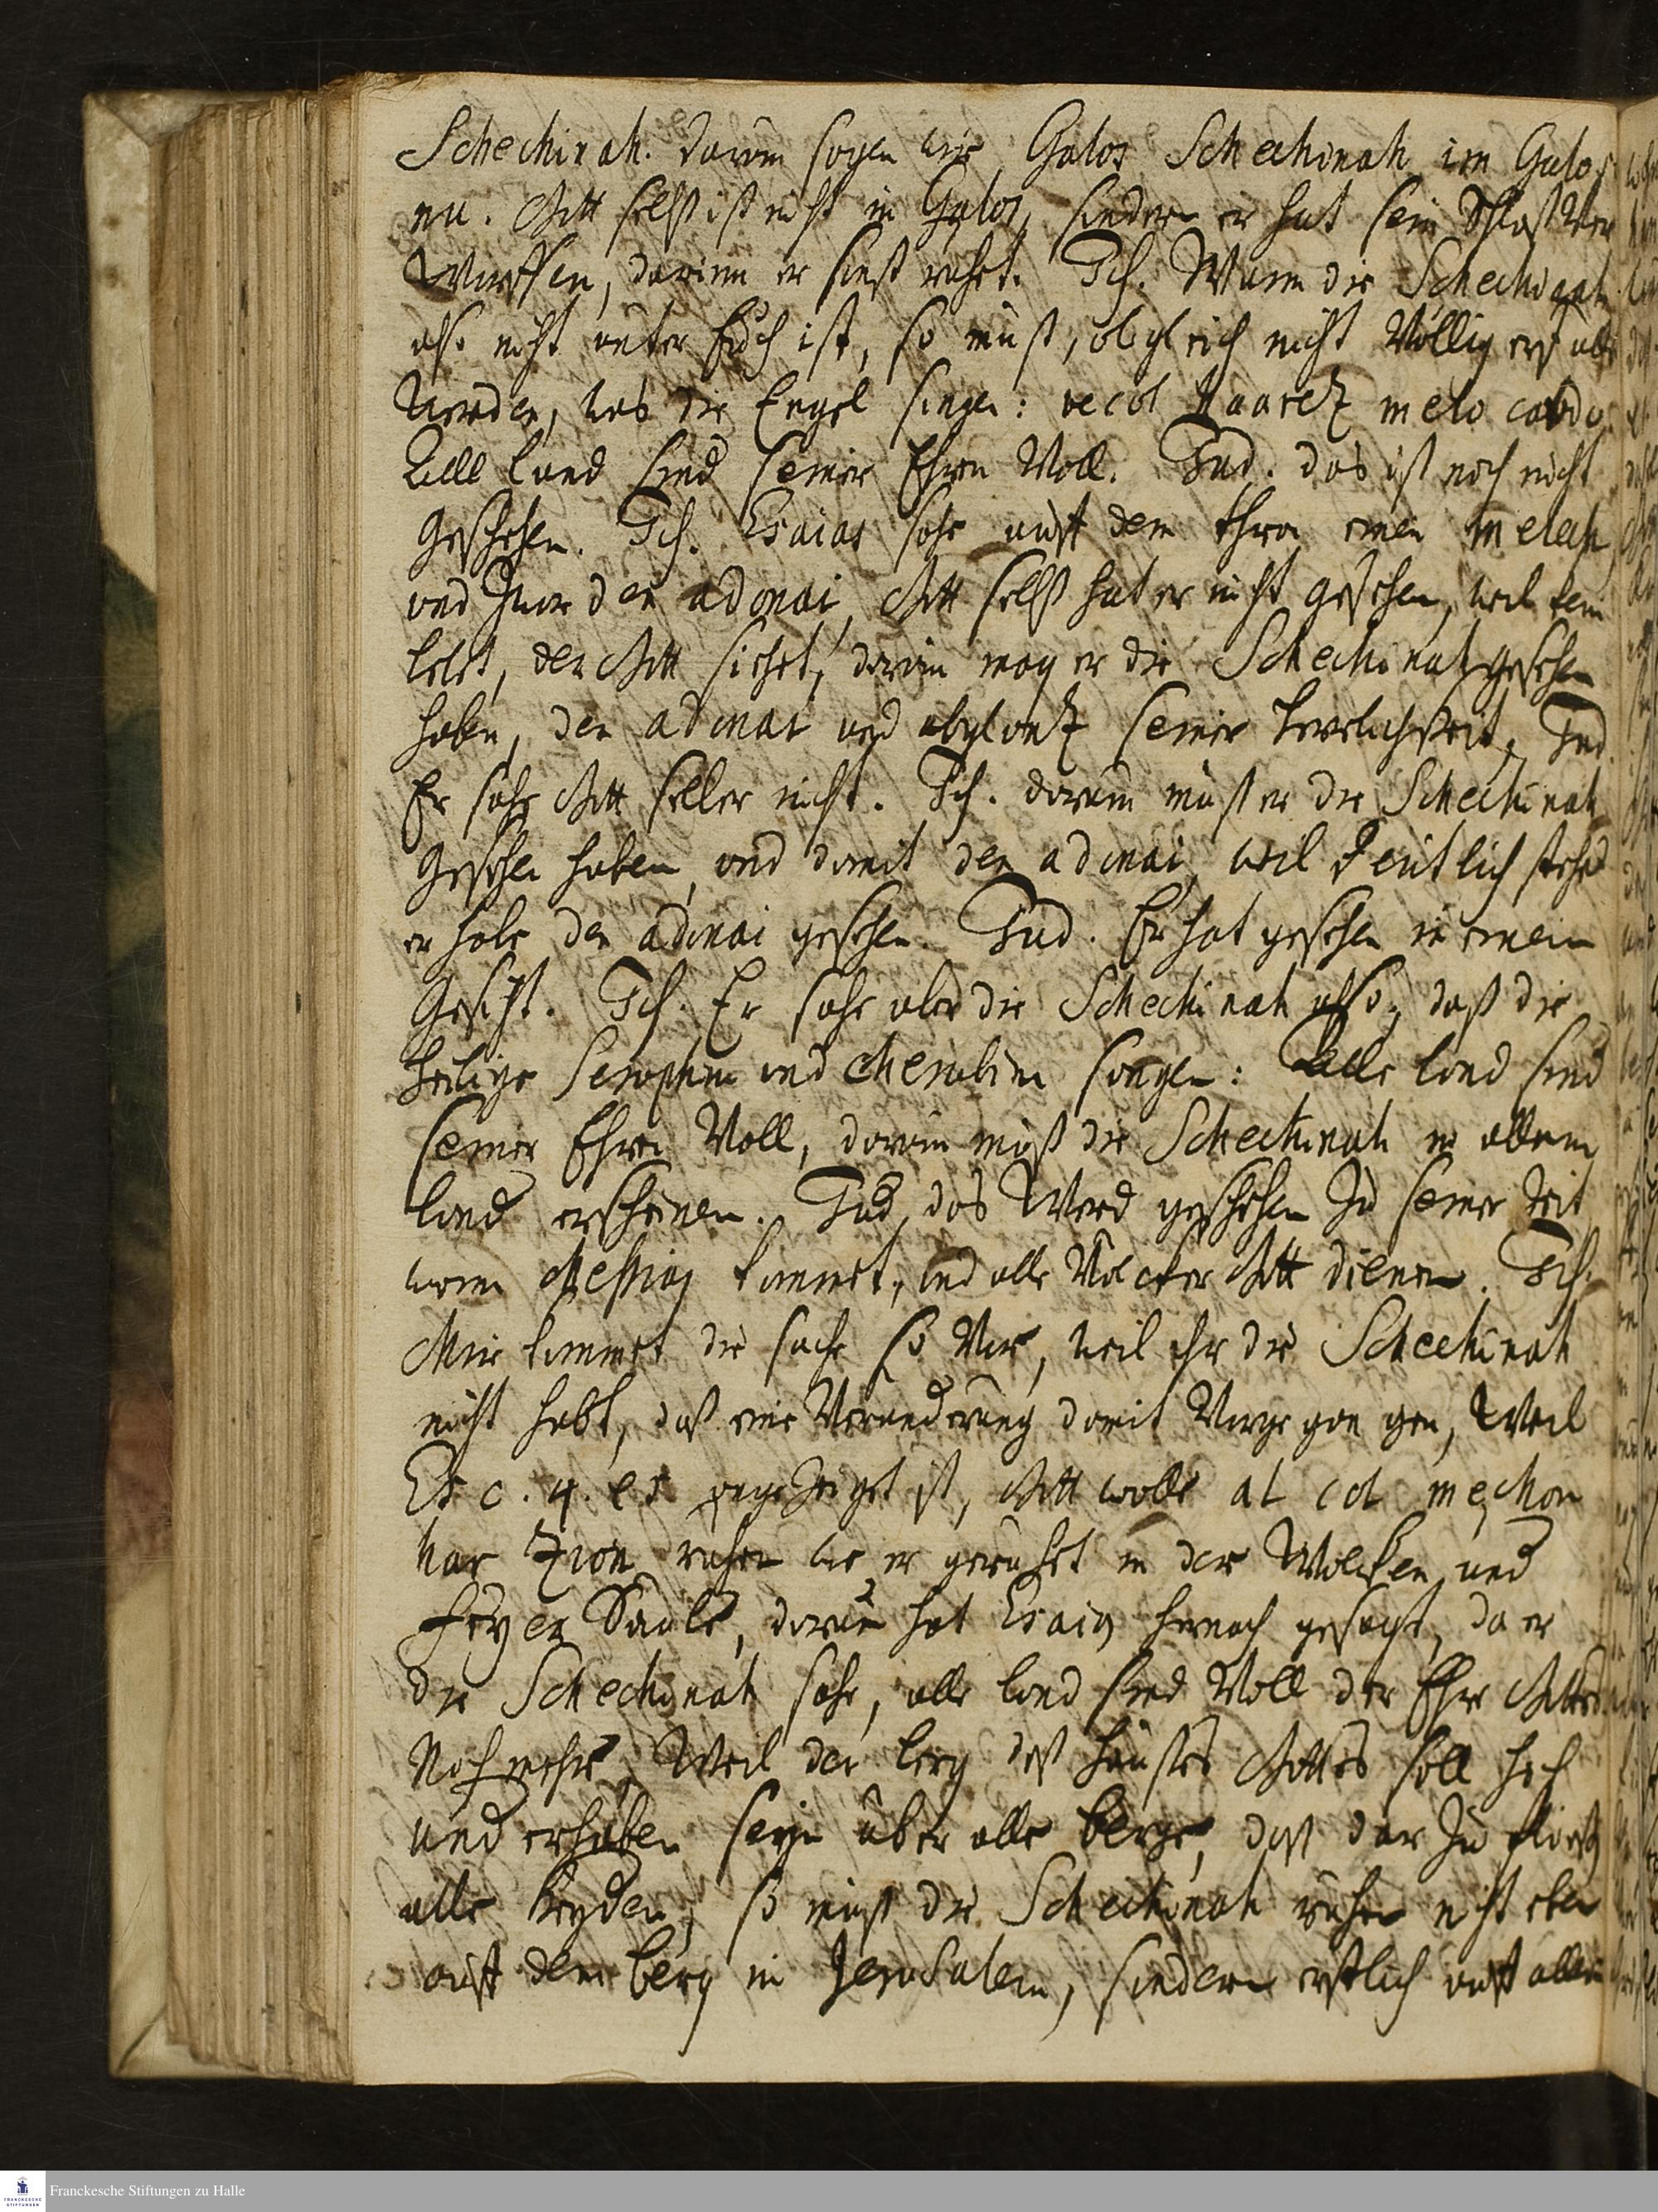 Schechinah. darum sagen wir, Galos Schechinah im Galos
nu. Gott selbst ist nicht in Galos, sondern er hat sein Schloß Ver
Worffen, darinn er sonst ruhet. Ich. Wann die Schechinah
also nicht unter Euch ist, so muß, obgleich nicht Völlig erfüllt
Werden, was die Engel singen: vecol Haaretz melo cavdo
Alle land sind seiner Ehren Voll. Jud. das ist noch nicht
Geschehen. Ich. Esaias sahe auff dem thron einen melech,
und Zwar den adonai, Gott selbst hat er nicht gesehen, weil kein
lebt, der Gott siehet, darum mag er die Schechinah gesehen
haben, den adonai und abglantz seiner Herrlichkeit, Jud.
Er sahe Gott selber nicht. Ich. darum muß er die Schechinah
Gesehen haben, und damit den adonai, weil deutlich stehet
er habe den adonai gesehen. Jud. Er hat gesehen in einem
Gesicht. Ich. Er sahe aber die Schechinah also, daß die
heilige Seraphim und Cherubim sangen: Alle land sind
seiner Ehren Voll, darum muß die Schechinah in allem
land erscheinen. Jud, das Werd geschehen Zu seiner Zeit
wann Messias kommet, und alle Völcker Gott dienen. Ich.
Mir kommet die sache so Vor, weil ihr die Schechinah
nicht habt, daß eine Veränderung damit Vorgegangen, Weil
Es c. 4. es angezeiget ist, Gott wolle al col mechon
har Zion ruhen wie er geruhet in der Wolcken und
feyer Säule, darum hat Esaias hernach gesagt, da er
die Schechinah sahe, alle land sind Voll der Ehre Gottes.
Noch mehr, Weil der berg deß haußes Gottes soll hoch
und erhaben seyn über alle berge, daß dar Zu
alle heyden, so muß die Schechinah ruhen nicht eben
auff dem berg in Jerusalem, sondern erstlich auff allem
Franckesche Stiftungen zu Halle